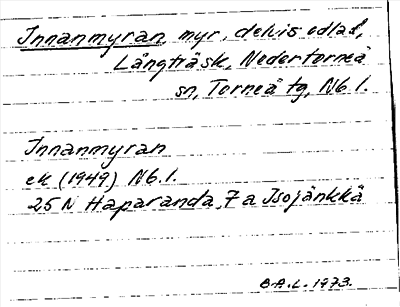 Innanmyran, myr, delvis odlad,
Långträsk, Nedertorneå
sn, Torneå tg, Nb. l.
Innanmyran
ek (1949) Nb. l.
25 N Haparanda, 7 a Isojänkkä
B-A. L. 1973.